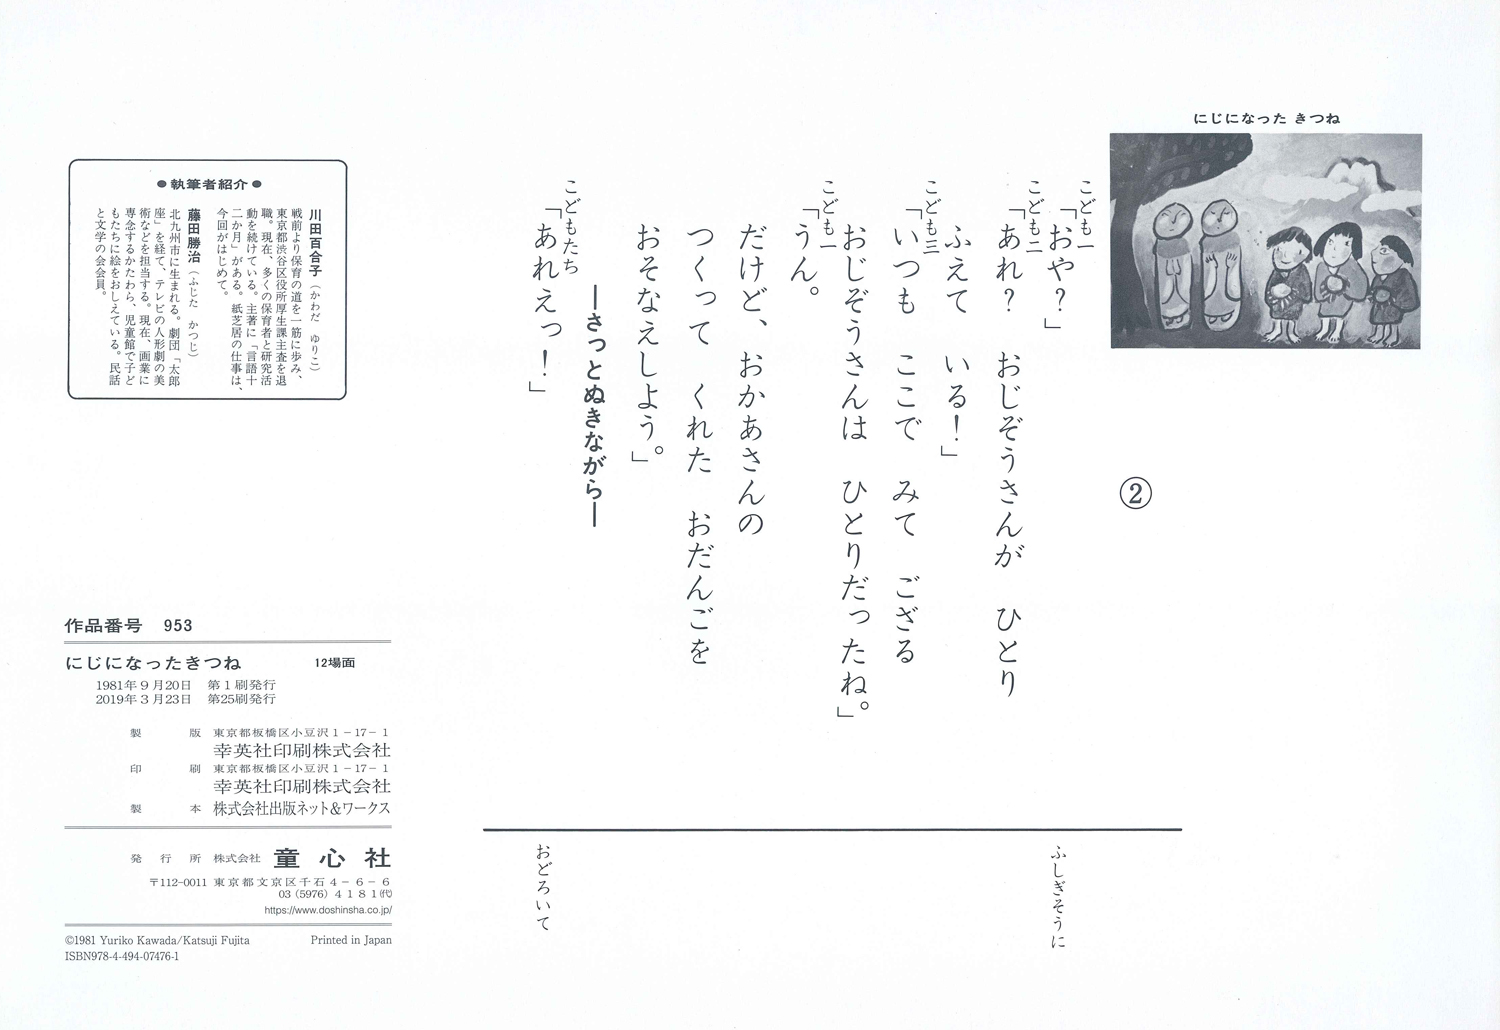 にじになった きつね
②
こども一
「おや？」
こども二
「あれ？　おじぞうさんが　ひとり
ふえて　いる！」
こども三
「いつも　ここで　みて　ござる
おじぞうさんは　ひとりだったね。」
こども一
「うん。
だけど、おかあさんの
つくって　くれた　おだんごを
おそなえしよう。」
―さっとぬきながら―
こどもたち
「あれえっ！」
ふしぎそうに
おどろいて
●執筆者紹介●
川田百合子（かわだ　ゆりこ）
戦前より保育の道を一筋に歩み、
東京都渋谷区役所厚生課主査を退
職。現在、多くの保育者と研究活
動を続けている。主著に「言語十
二か月」がある。紙芝居の仕事は、
今回がはじめて。
藤田勝治（ふじた　かつじ）
北九州市に生まれる。劇団「太郎
座」を経て、テレビの人形劇の美
術などを担当する。現在、画業に
専念するかたわら、児童館で子ど
もたちに絵をおしえている。民話
と文学の会会員。
作品番号　953
にじになったきつね　12場面
1981年９月20日　第１刷発行
2019年３月23日　第25刷発行
製　版　東京都板橋区小豆沢１−17−１
幸英社印刷株式会社
印　刷　東京都板橋区小豆沢１−17−１
幸英社印刷株式会社
製　本　株式会社出版ネット＆ワークス
発　行　所　株式会社　童　心　社
〒112-0011　東京都文京区千石４−６−６
03（5976）４１８１㈹
https://www.doshinsha.co.jp/
©1981 Yuriko Kawada/Katsuji Fujita　Printed in Japan
ISBN978-4-494-07476-1